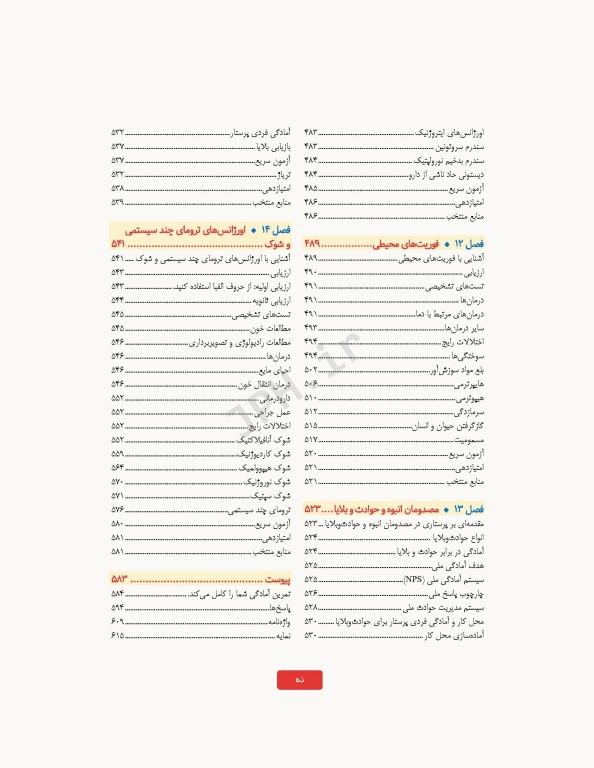 اورژانس‌های ایتروژنیک ۴۸۳
سندرم سروتونین ۴۸۳
سندرم بدخیم نورولپتیک ۴۸۴
دیستونی حاد ناشی از دارو ۴۸۴
آزمون سریع ۴۸۵
امتیازدهی ۴۸۶
منابع منتخب ۴۸۶
فصل ۱۲ ♦ فوریت‌های محیطی ۴۸۹
آشنایی با فوریت‌های محیطی ۴۸۹
ارزیابی ۴۹۰
تست‌های تشخیصی ۴۹۱
درمان‌ها ۴۹۱
درمان‌های مرتبط با دما ۴۹۱
سایر درمان‌ها ۴۹۳
اختلالات رایج ۴۹۴
سوختگی‌ها ۴۹۴
بلع مواد سوزش‌آور ۵۰۲
هایپرترمی ۵۰۶
هیپوترمی ۵۱۰
سرمازدگی ۵۱۲
گازگرفتن حیوان و انسان ۵۱۵
مسمومیت ۵۱۷
آزمون سریع ۵۲۰
امتیازدهی ۵۲۱
منابع منتخب ۵۲۱
فصل ۱۳ ♦ مصدومان انبوه و حوادث و بلایا ۵۲۳
مقدمه‌ای بر پرستاری در مصدومان انبوه و حوادث‌وبلایا ۵۲۳
انواع حوادث‌وبلایا ۵۲۴
آمادگی در برابر حوادث و بلایا ۵۲۴
هدف آمادگی ملی ۵۲۵
سیستم آمادگی ملی (NPS) ۵۲۵
چارچوب پاسخ ملی ۵۲۶
سیستم مدیریت حوادث ملی ۵۲۸
محل کار و آمادگی فردی پرستار برای حوادث‌وبلایا ۵۳۰
آماده‌سازی محل کار ۵۳۰
آمادگی فردی پرستار ۵۳۲
بازیابی بلایا ۵۳۷
آزمون سریع ۵۳۷
تریاژ ۵۳۲
امتیازدهی ۵۳۸
منابع منتخب ۵۳۹
فصل ۱۴ ♦ اورژانس‌های ترومای چند سیستمی
و شوک ۵۴۱
آشنایی با اورژانس‌های ترومای چند سیستمی و شوک ۵۴۱
ارزیابی ۵۴۳
ارزیابی اولیه: از حروف الفبا استفاده کنید ۵۴۳
ارزیابی ثانویه ۵۴۴
تست‌های تشخیصی ۵۴۵
مطالعات خون ۵۴۵
مطالعات رادیولوژی و تصویربرداری ۵۴۶
درمان‌ها ۵۴۶
احیای مایع ۵۴۶
درمان انتقال خون ۵۴۶
دارودرمانی ۵۵۲
عمل جراحی ۵۵۲
اختلالات رایج ۵۵۲
شوک آنافیلاکتیک ۵۵۲
شوک کاردیوژنیک ۵۵۹
شوک هیپوولمیک ۵۶۴
شوک نوروژنیک ۵۷۰
شوک سپتیک ۵۷۱
ترومای چند سیستمی ۵۷۶
آزمون سریع ۵۸۰
امتیازدهی ۵۸۱
منابع منتخب ۵۸۱
پیوست ۵۸۳
تمرین آمادگی شما را کامل می‌کند ۵۸۴
پاسخ‌ها ۵۹۴
واژه‌نامه ۶۰۹
نمایه ۶۱۵
نه
JPH.ir